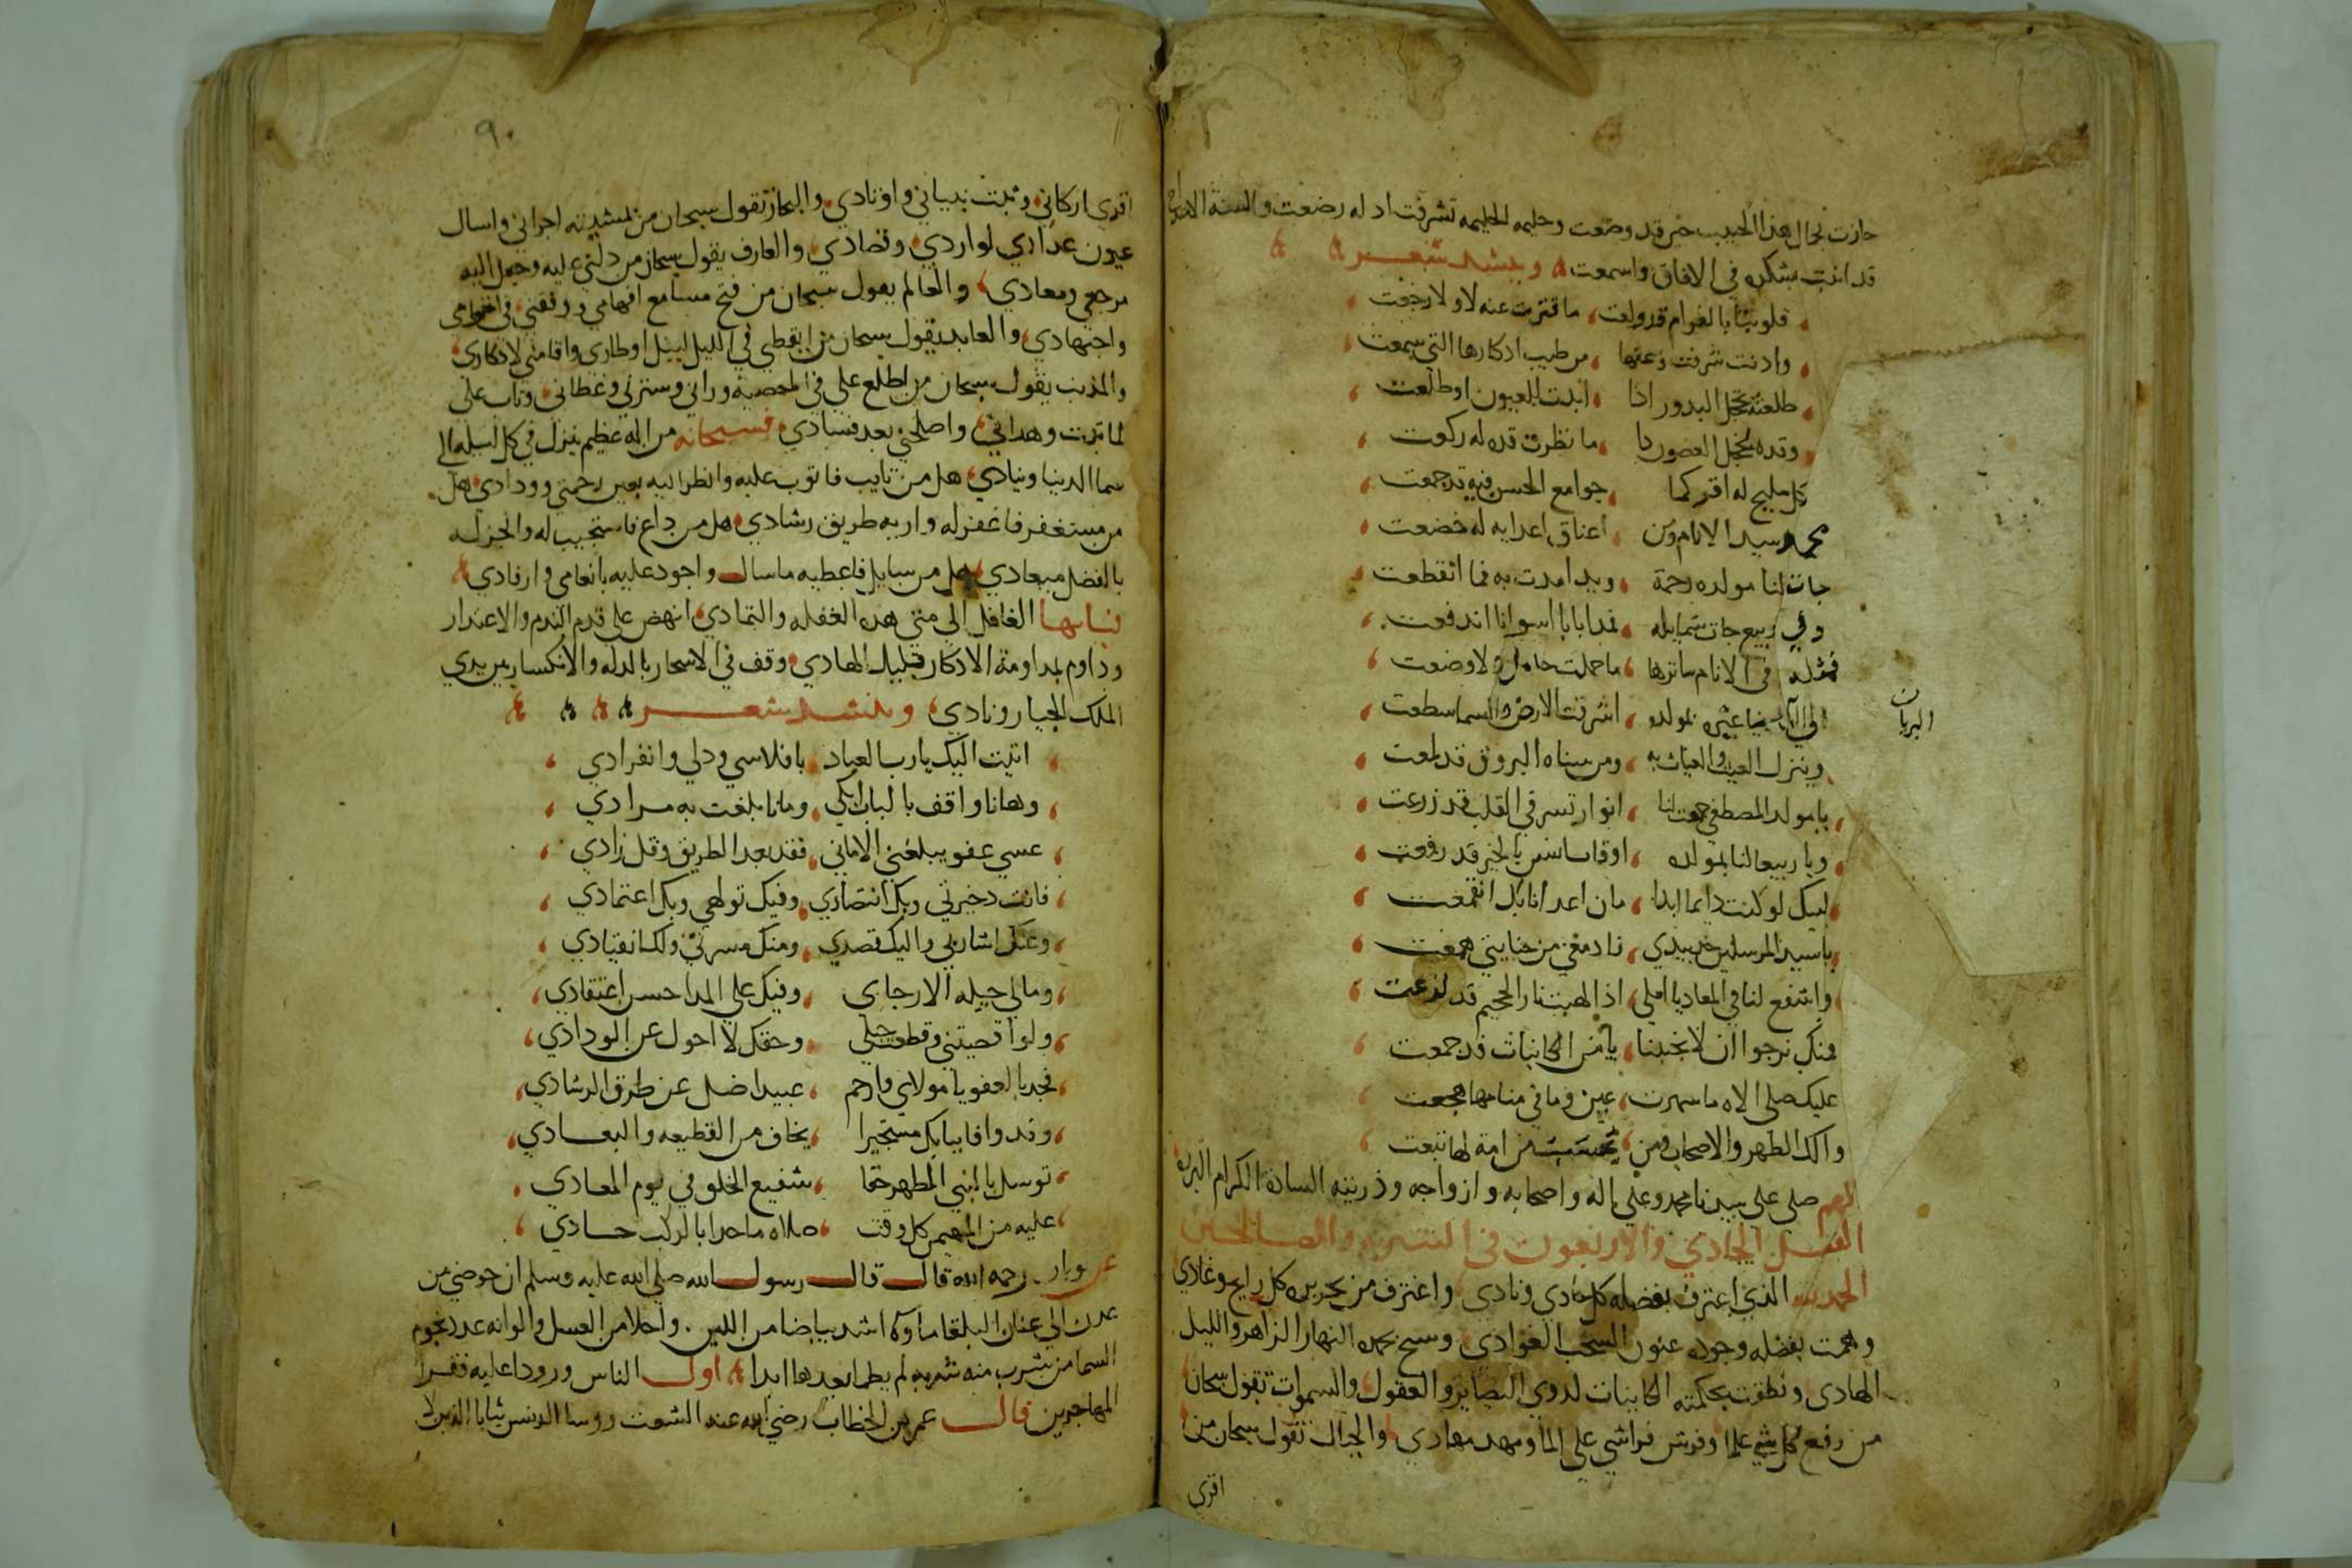 حازت بحال هذا الحبيب حين قد وضعت وحليمه الحليمه تشرفت اذ له رضعت والسنة
قد اتت بشكره في الافاق واسمعت وينشد شعر
قلوبنا بالغرام قد ولعت ما فترت عنه لا ولا رجعت
واذنت شرفت من طيب اذكارها التي سمعت
طلعته تخجل البدور اذا ابدت للعيون او طلعت
وقده يخجل الغصون ما نظرت قده له ركعت
كل مليح له اقر كما جوامع الحسن فيه قد جمعت
محمد سيد الانام ومن اعناق اعدايه له خضعت
جات لنا مولده رحمة وبدا مدت به فما انقطعت
وفي ربيع جات شمايله اندفعت
فمثله في الانام ساترها ما حملت حامل ولا وضعت
البريات
بمولده اشرقت الارض والسما سطعت
وينزل الغيث والغياث به ومن سناه البروق قد لمعت
يا مولد المصطفي جمعت لنا انوار تسر في القلب قد زرعت
ويا ربيعا لنا بمولده بالخير قد رفعت
لبيك لو كنت دايما ابدا مان اعدانا بك انقمعت
يا سيد المرسلين خذ بيدي فادمعي من جنايتي همعت
واشفع لنا في المعاد يا املي اذا لهبت نار الجحيم قد لذعت
منك نرجوا ان لا تخيبنا يا من الكاينات قد جمعت
عليك صلى الاه ما سهرت عين وما في منامها هجعت
والك الطهر والاصحاب ومن من امة لها تبعت
اللهم صلى على سيدنا محمد وعلى اله واصحابه وازواجه وذريته السادة الكرام البره
الفصل الحادي والاربعون في والصالحين
الحمد لله الذي اعترف بفضله كل حادي ونادي واغترف من بحر بره كل رايح وغادي
وهمت بفضله وجوده عيون السحب الغوادي وسبح بحمده النهار الزاهر والليل
الهادي ونطقت بحكمته الكاينات لذوي البصاير والعقول والسموات تقول سبحان
من رفع وفرش فراشي على الما ومهد مهادي والجبال تقول سبحان من
اقري
٩٠
اقري اركاني وثبت بنياني واوتادي والبحار تقول سبحان من بمشيته اجراني واسال
عيون عدادي لواردي وقصادي والعارف يقول سبحان من دلني عليه وجعل اليه
مرجعي ومعادي والعالم يقول سبحان من فتح مسامع افهامي ووفقني في
واجتهادي والعابد يقول سبحان من ايقظني في الليل لنيل اوطاري واقامني لاذكاري
والمذنب يقول سبحان من اطلع علي في المعصية وراني وسترني وغطاني وتاب علي
لما تبت وهداني واصلحني بعد فسادي فسبحانه من اله عظيم ينزل في كل ليله الي
سما الدنيا وينادي هل من تايب فاتوب عليه وانظر اليه بعين رحمتي وودادي هل
من مستغفر فاغفر له واريه طريق رشادي هل من داع فاستجيب له وانجز له
بالفضل ميعادي هل من سايل فاعطيه ما سال واجود عليه بانعامي وارفادي
فيا ايها الغافل الي متي هذه الغفله والتمادي انهض على قدم الندم والاعتذار
وداوم بمداومة الاذكار قبليك الهادي وقف في الاسحار بالذله والانكسار بين يدي
الملك الجبار ونادي وينشد شعر
اتيت اليك يا رب العباد بافلاسي وذلي وانفرادي
وها انا واقف بالباب ابكي وما انا بلغت به مرادي
عسي عفو يبلغني الاماني فقد بعد الطريق وقل زادي
فانت ذخيرتي وبك انتصاري وفيك تولهي وبك اعتمادي
وعنك اشارتي واليك قصدي ومنك مسرتي ولك انقيادي
ومالي حيله الا رجاي وفيك علي المدا حسن اعتقادي
ولو اقصيتني وقطعت حبلي وحقك لا احول عن الودادي
فجد بالعفو يا مولاي وارحم عبيدا ضل عن طرق الرشادي
وقد وافا ببابك مستجيرا يخاف من القطيعه والبعادي
توسل بالنبي المطهر حقا شفيع الخلق في يوم المعادي
عليه من المهيمن كل وقت صلاه ما حدا بالركب حادي
عن رحمه الله قال قال رسول الله صلى الله عليه وسلم ان حوضي من
عدن الي عمان البلقا ماوه اشد بياضا من اللبن واحلا من العسل والوانه عدد نجوم
السما من شرب منه شربه لم يظما بعدها ابدا اول الناس ورودا عليه فقرا
المهاجرين قال عمر بن الخطاب رضي الله عنه الشعت روسا الدنس ثيابا الذين لا